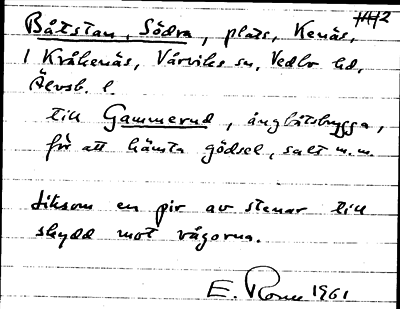 Båtstan, Södra, plats, Kenäs,
1 Kråkenäs, Vårviks sn, Vedbo hd,
Älvsb. l.
till Gammerud, ångbåtsbrygga,
för att hämta gödsel, salt m.m.
liksom en pir av stenar till
skydd mot vågorna.
E. 1961